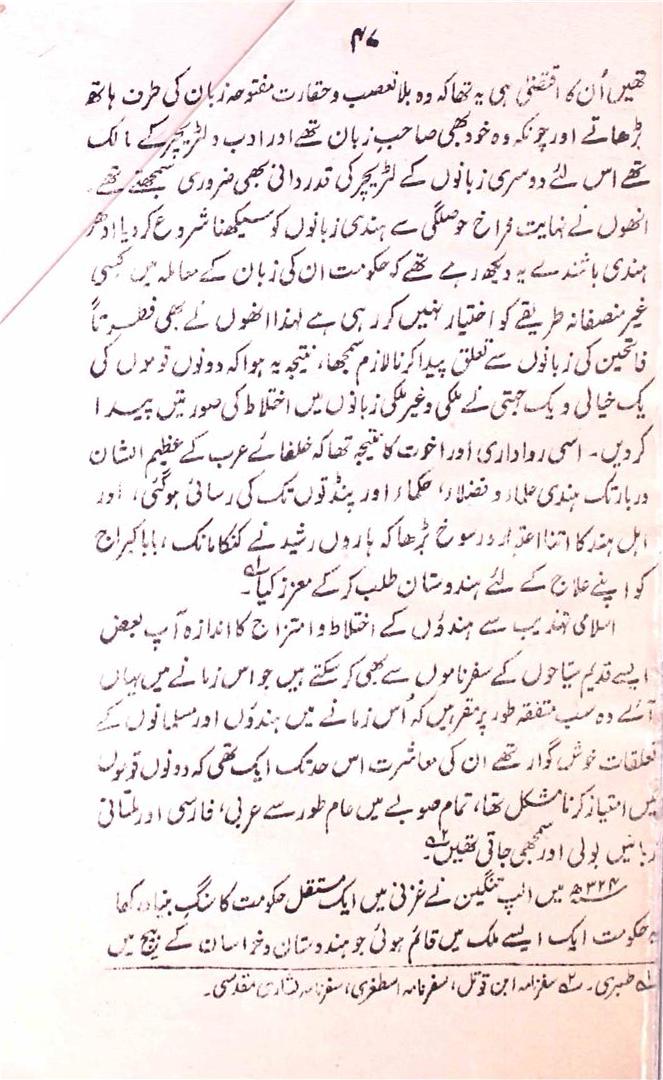 ۴۷
تھیں اُن کا اقتضیٰ ہی یہ تھا کہ وہ بلا تعصب و حقارت مفتوحہ زبان کی طرف ہاتھ
بڑھاتے اور چونکہ وہ خود بھی صاحبِ زبان تھے اور ادب و لٹریچر کے مالک
تھے اس لئے دوسری زبانوں کے لٹریچر کی قدردانی بھی ضروری سمجھتے تھے۔
انھوں نے نہایت فراخ حوصلگی سے ہندی زبانوں کو سیکھنا شروع کر دیا ادھر
ہندی باشندے یہ دیکھ رہے تھے کہ حکومت ان کی زبان کے معاملہ میں کسی
غیر منصفانہ طریقے کو اختیار نہیں کر رہی ہے لہٰذا انھوں نے بھی فطرتاً
فاتحین کی زبانوں سے تعلق پیدا کرنا لازم سمجھا، نتیجہ یہ ہوا کہ دونوں قوموں کی
یک خیالی و یک جہتی نے ملکی و غیر ملکی زبانوں میں اختلاط کی صورتیں پیدا
کر دیں۔ اسی رواداری اور اخوت کا نتیجہ تھا کہ خلفائے عرب کے عظیم الشان
دربار تک ہندی علماء و فضلاء، حکماء اور پنڈتوں تک کی رسائی ہو گئی، اور
اہل ہند کا اتنا اعتبار و رسوخ بڑھا کہ ہاروں رشید نے کنکا مانک، بابا کبراج
کو اپنے علاج کے لئے ہندوستان طلب کر کے معزز کیا۔۱
اسلامی تہذیب سے ہندوؤں کے اختلاط و امتزاج کا اندازہ آپ بعض
ایسے قدیم سیّاحوں کے سفرناموں سے بھی کر سکتے ہیں جو اس زمانے میں یہاں
آئے وہ سب متفقہ طور پر مقر ہیں کہ اُس زمانے میں ہندوؤں اور مسلمانوں کے
تعلقات خوش گوار تھے ان کی معاشرت اس حد تک ایک تھی کہ دونوں قوموں
میں امتیاز کرنا مشکل تھا، تمام صوبے میں عام طور سے عربی، فارسی اور ملتانی
زبانیں بولی اور سمجھی جاتی تھیں۔۲
۳۲۴ھ میں الپ تگین نے غزنی میں ایک مستقل حکومت کا سنگِ بنیاد رکھا
یہ حکومت ایک ایسے ملک میں قائم ہوئی جو ہندوستان و خراسان کے بیچ میں
۱ طبری۔ ۲ سفرنامہ ابن حوقل، سفرنامہ اصطخری، سفرنامہ بشاری مقدسی۔